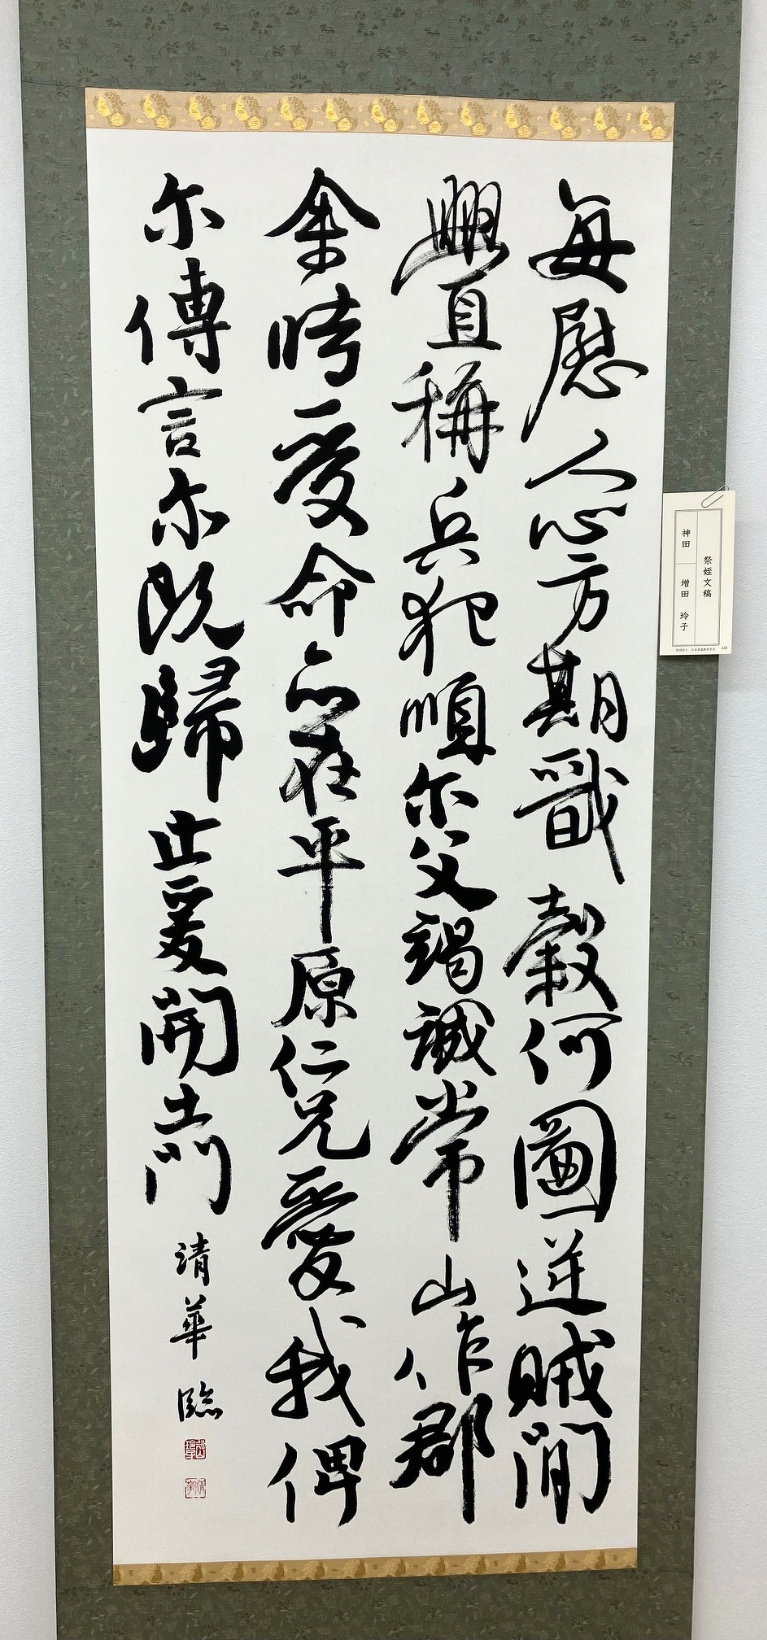 每慰人心方期戩糓何圖逆賊閒
釁直稱兵犯順尔父竭誠常山作郡
余時受命亦在平原仁兄愛我俾
尔傳言尔既歸止爰開土門
清華臨
祭姪文稿
神田 增田 玲子